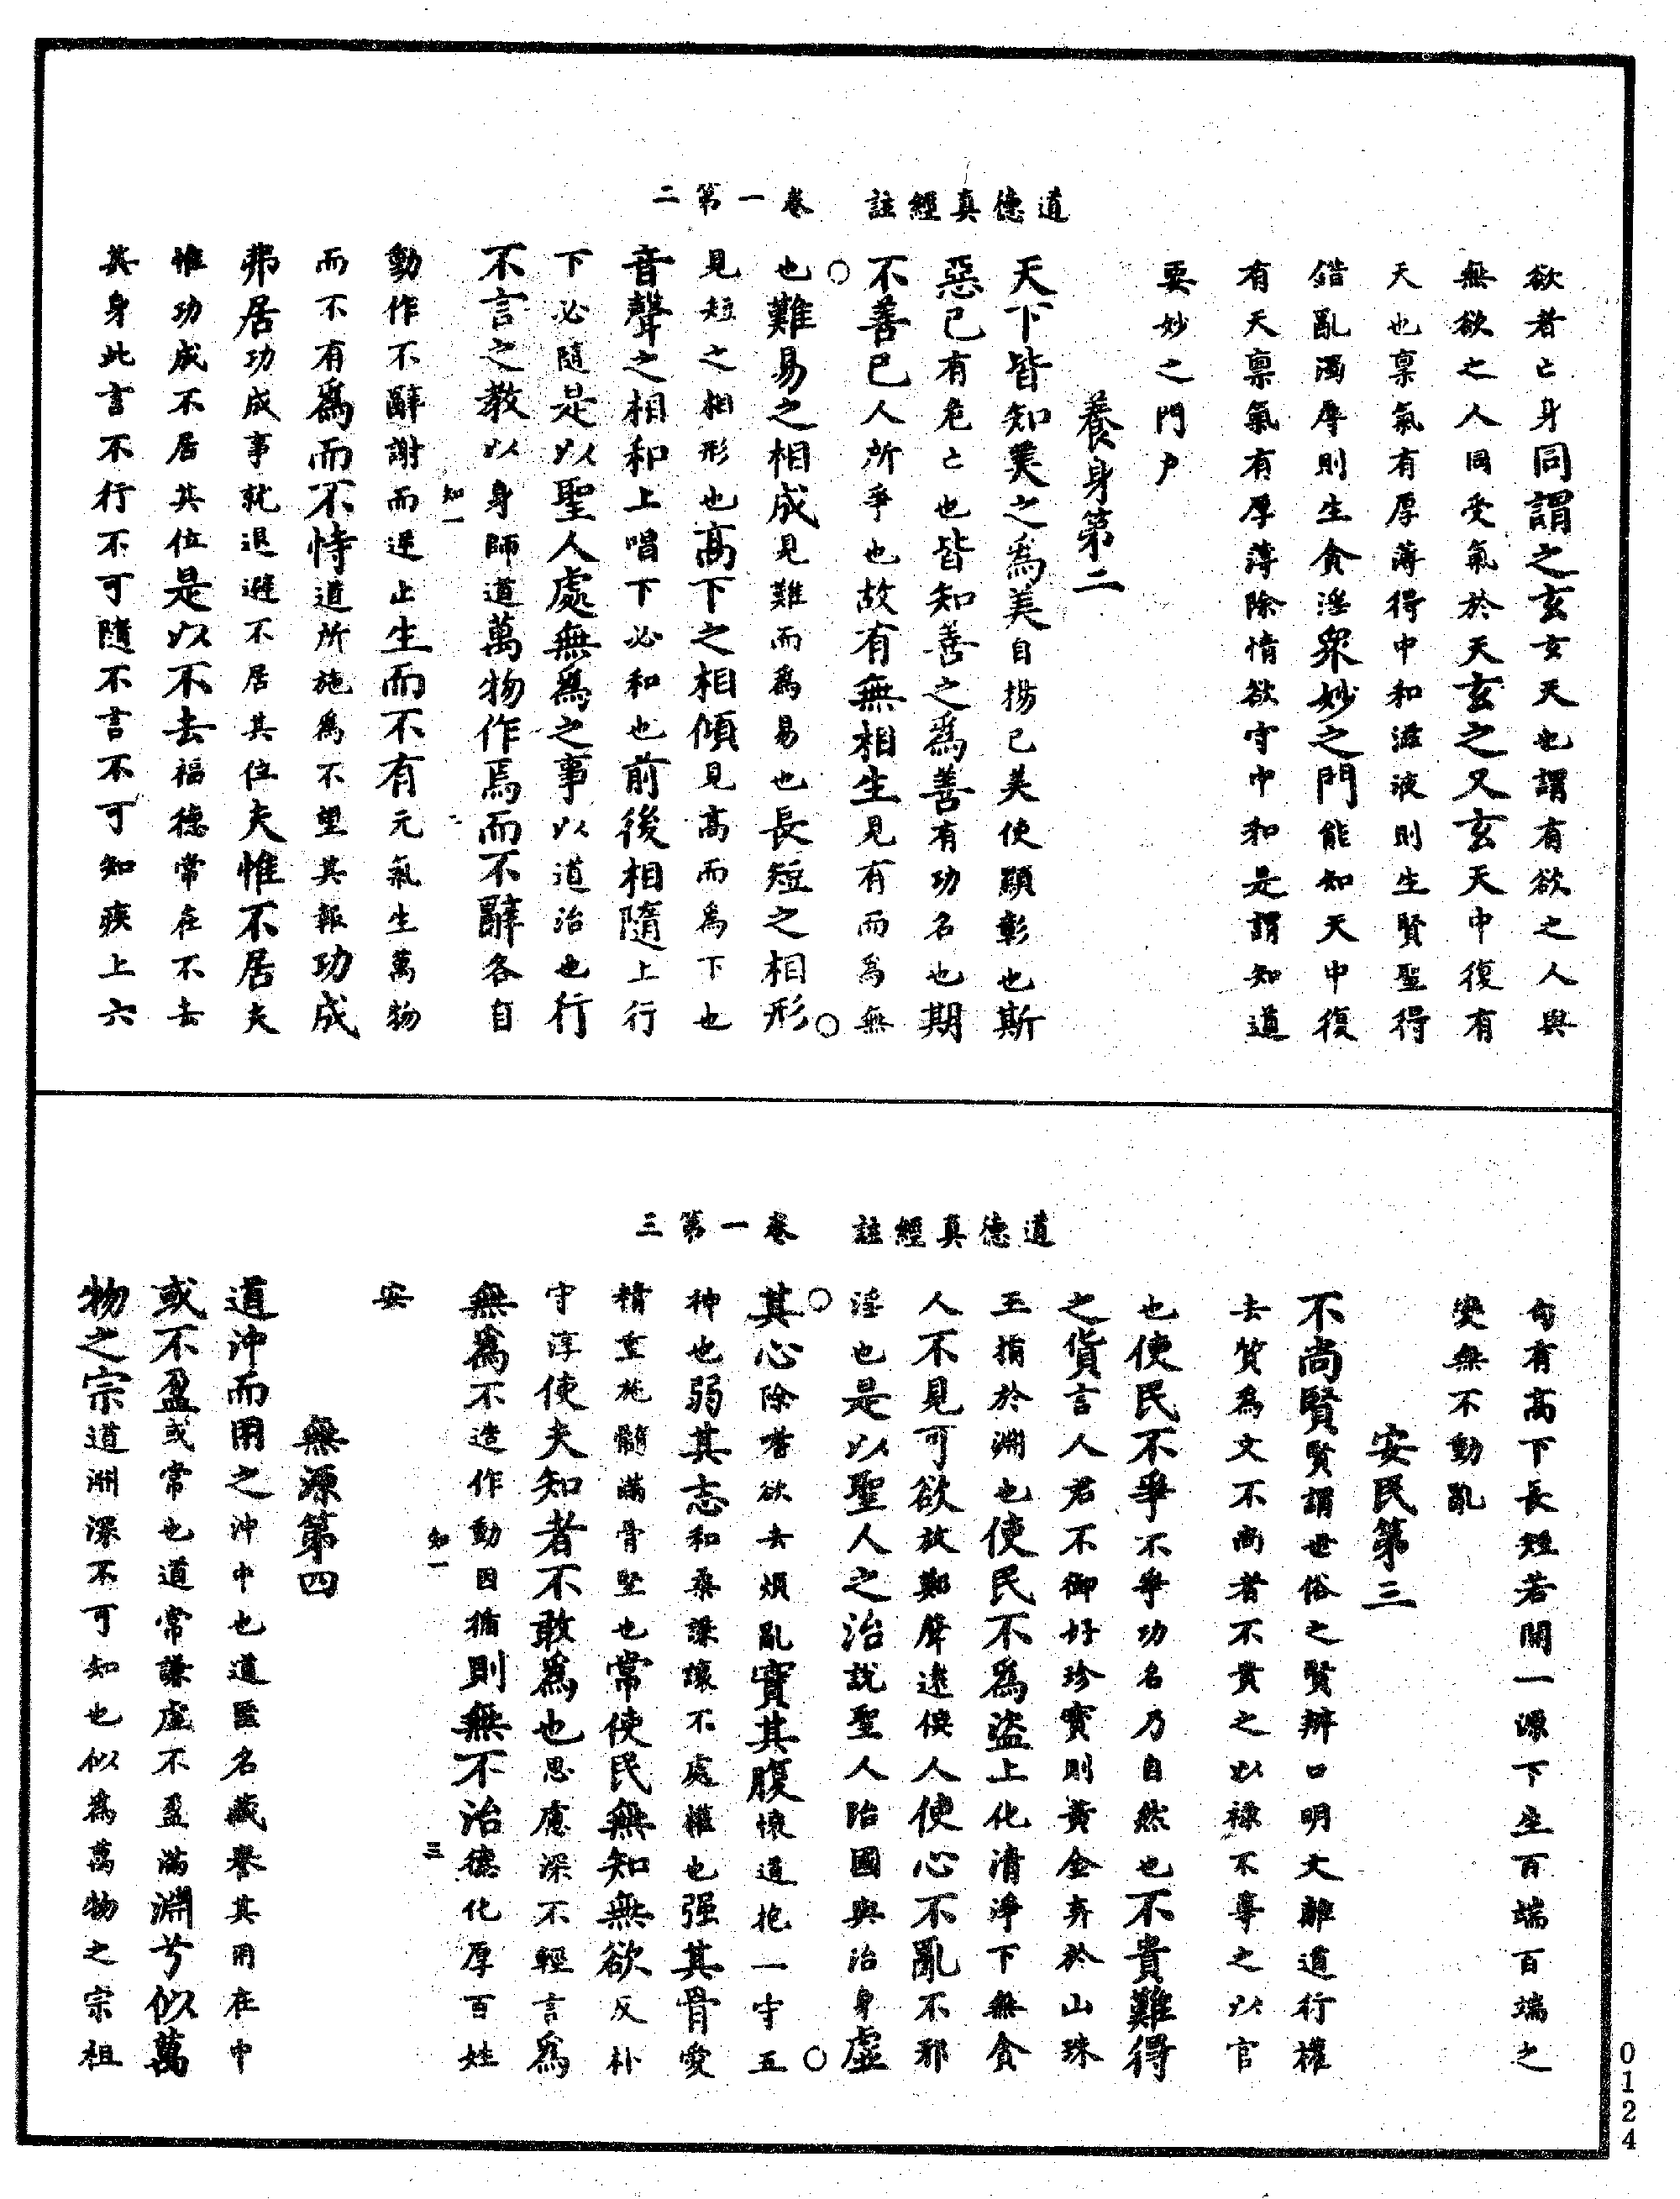 道德真經註　卷一第二
欲者亡身同謂之玄玄天也謂有欲之人與
無欲之人同受氣於天玄之又玄天中復有
天也稟氣有厚薄得中和滋液則生賢聖得
錯亂濁辱則生貪淫衆妙之門能知天中復
有天稟氣有厚薄除情欲守中和是謂知道
要妙之門戶
養身第二
天下皆知美之爲美自揚己美使顯彰也斯
惡已有危亡也皆知善之爲善有功名也期
不善已人所爭也故有無相生見有而爲無
也難易之相成見難而爲易也長短之相形
見短之相形也高下之相傾見高而爲下也
音聲之相和上唱下必和也前後相隨上行
下必隨是以聖人處無爲之事以道治也行
不言之教以身師道萬物作焉而不辭各自
知一
二
動作不辭謝而逆止生而不有元氣生萬物
而不有爲而不恃道所施爲不望其報功成
弗居功成事就退避不居其位夫惟不居夫
惟功成不居其位是以不去福德常在不去
其身此言不行不可隨不言不可知疾上六
道德真經註　卷一第三
句有高下長短若開一源下生百端百端之
變無不動亂
安民第三
不尚賢賢謂世俗之賢辯口明文離道行權
去質爲文不尚者不貴之以祿不尊之以官
也使民不爭不爭功名乃自然也不貴難得
之貨言人君不御好珍寶則黃金弃於山珠
玉捐於淵也使民不爲盜上化清淨下無貪
人不見可欲放鄭聲遠佞人使心不亂不邪
淫也是以聖人之治說聖人治國與治身虛
其心除嗜欲去煩亂實其腹懷道抱一守五
神也弱其志和柔謙讓不處權也强其骨愛
精重施髓滿骨堅也常使民無知無欲反朴
守淳使夫知者不敢爲也思慮深不輕言爲
無爲不造作動因循則無不治德化厚百姓
知一
三
安
無源第四
道沖而用之沖中也道匿名藏譽其用在中
或不盈或常也道常謙虛不盈滿淵兮似萬
物之宗道淵深不可知也似爲萬物之宗祖
0124